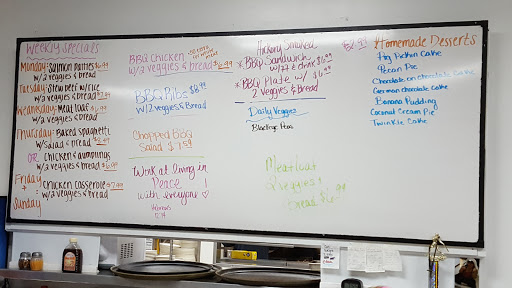 Weekly Specials
Monday: Salmon Patties $6.99
w/2 veggies & bread
Tuesday: Stew beef w/rice
w/2 veggies & bread $7.99
Wednesday: Meat loaf $6.99
w/2 veggies & bread
Thursday: Baked spaghetti
w/salad & bread $7.99
OR Chicken & dumplings
w/2 veggies & bread $6.99
Friday
+
Sunday
Chicken casserole $7.99
w/2 veggies & bread
BBQ Chicken
w/2 veggies & bread $6.99
BBQ Ribs $8.99
w/2 veggies & bread
Chopped BBQ
Salad $7.59
Work at living in
Peace
with everyone!
Hebrews
12:14
Hickory Smoked
* BBQ Sandwich $6.99
w/FF & drink
* BBQ Plate w/ $6.99
2 veggies & bread
Daily Veggies
Blackeye Peas
Meatloaf
2 veggies
bread $6.99
$2.99
Homemade Desserts
Pig Pickin Cake
Pecan Pie
Chocolate on chocolate Cake
German chocolate Cake
Banana Pudding
Coconut Cream Pie
Twinkie Cake